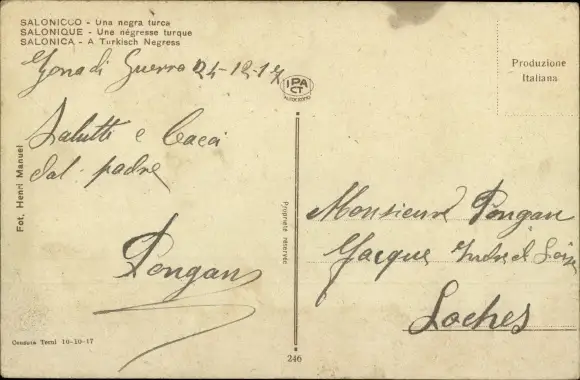 SALONICCO - Una negra turca
SALONIQUE - Une négresse turque
SALONICA - A Turkisch Negress
Zona di Guerra 24-12-17
IPA CT
Produzione
Italiana
Salutti e Baci
dal padre
Pongan
Fot. Henri Manuel
Propriété réservée
Monsieur Pongan
Jacque Indre et Loire
Loches
Censura Terni 10-10-17
246